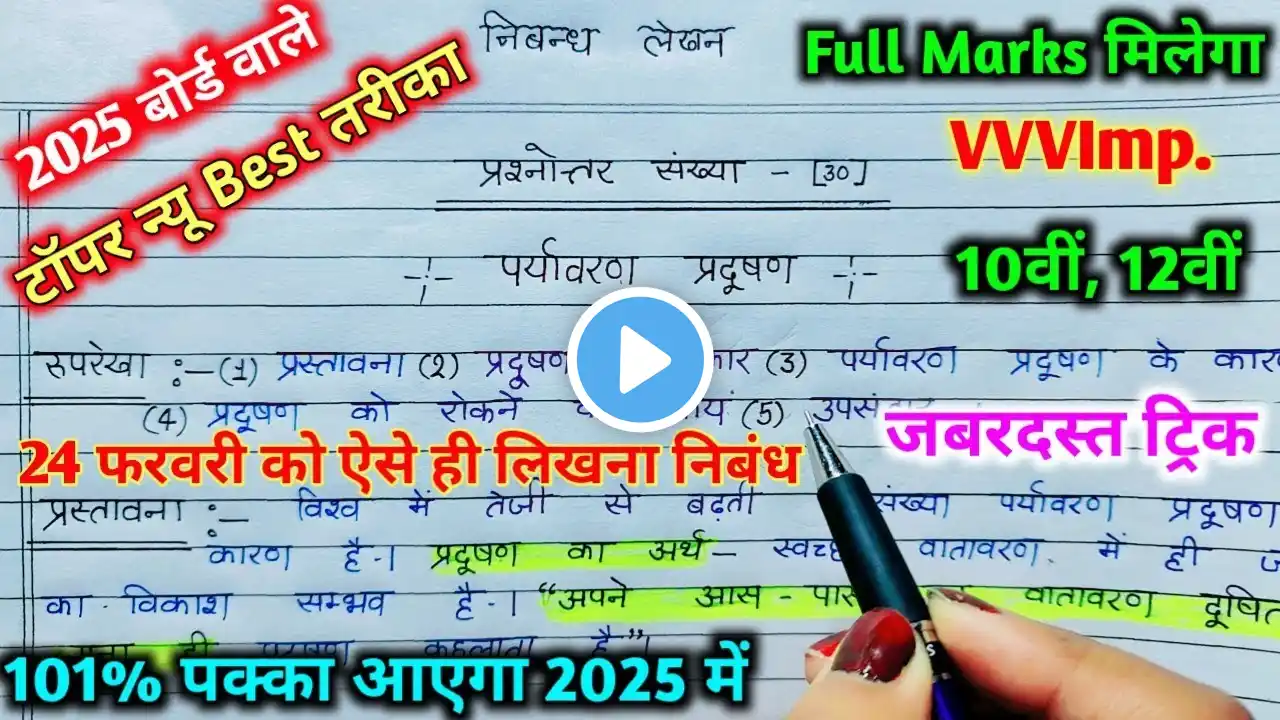 2025 बोर्ड वाले
टॉपर न्यू Best तरीका
निबन्ध लेखन
Full Marks मिलेगा
VVVImp.
प्रश्नोत्तर संख्या - [30]
10वीं, 12वीं
-:- पर्यावरण प्रदूषण -:-
रूपरेखा :- (1) प्रस्तावना (2) प्रदूषण (3) पर्यावरण प्रदूषण के
(4) प्रदूषण को रोकने (5)
जबरदस्त ट्रिक
24 फरवरी को ऐसे ही लिखना निबंध
प्रस्तावना :- विश्व में तेजी से बढ़ती संख्या पर्यावरण प्रदूषण
कारण है। प्रदूषण का अर्थ - वातावरण में ही
का विकाश सम्भव है। "अपने आस - वातावरण
कहलाता है"।
101% पक्का आएगा 2025 में